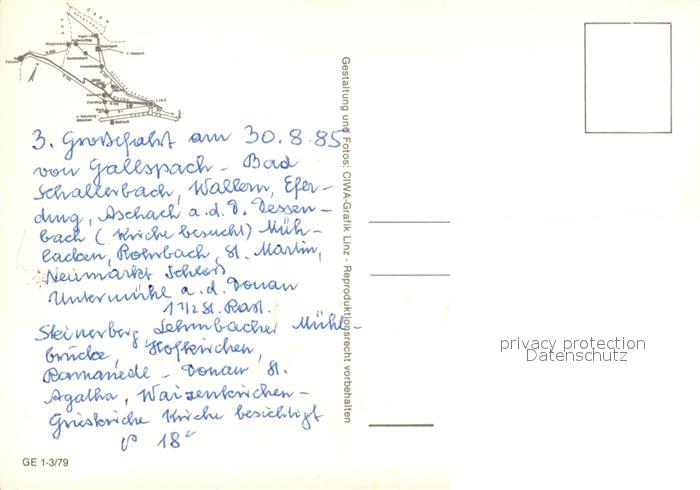 3. Großfahrt am 30.8.85
von Gallspach - Bad
Schallerbach, Wallern, Efer-
ding, Aschach a.d.D. Dessen-
bach (Kirche besucht) Müh-
lacken, Rohrbach, St. Martin,
Neumarkt Schloß
Untermühl a.d. Donau
1 1/2 St. Rast.
Steinerberg Lehmbacher Mühl-
brücke, Hofkirchen,
Rannariedl - Donau St.
Agatha, Waizenkirchen -
Grieskirche Kirche besichtigt
18
Gestaltung und Fotos: CIWA-Grafik Linz - Reproduktionsrecht vorbehalten
privacy protection
Datenschutz
GE 1-3/79